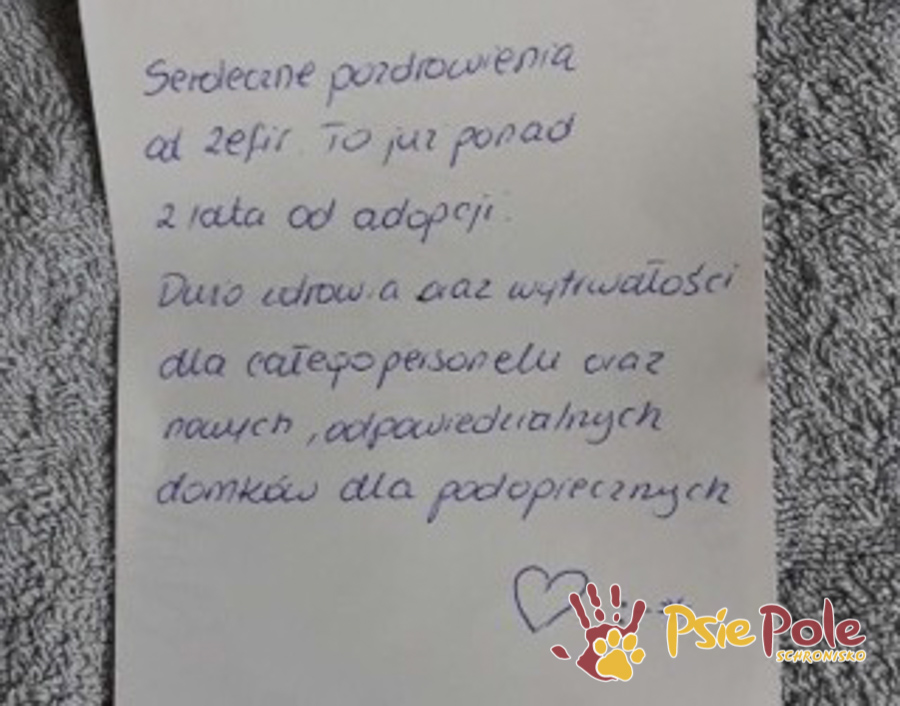 Serdeczne pozdrowienia
od Zefir. To już ponad
2 lata od adopcji.
Dużo zdrowia oraz wytrwałości
dla całego personelu oraz
nowych, odpowiedzialnych
domków dla podopiecznych
Psie Pole
SCHRONISKO